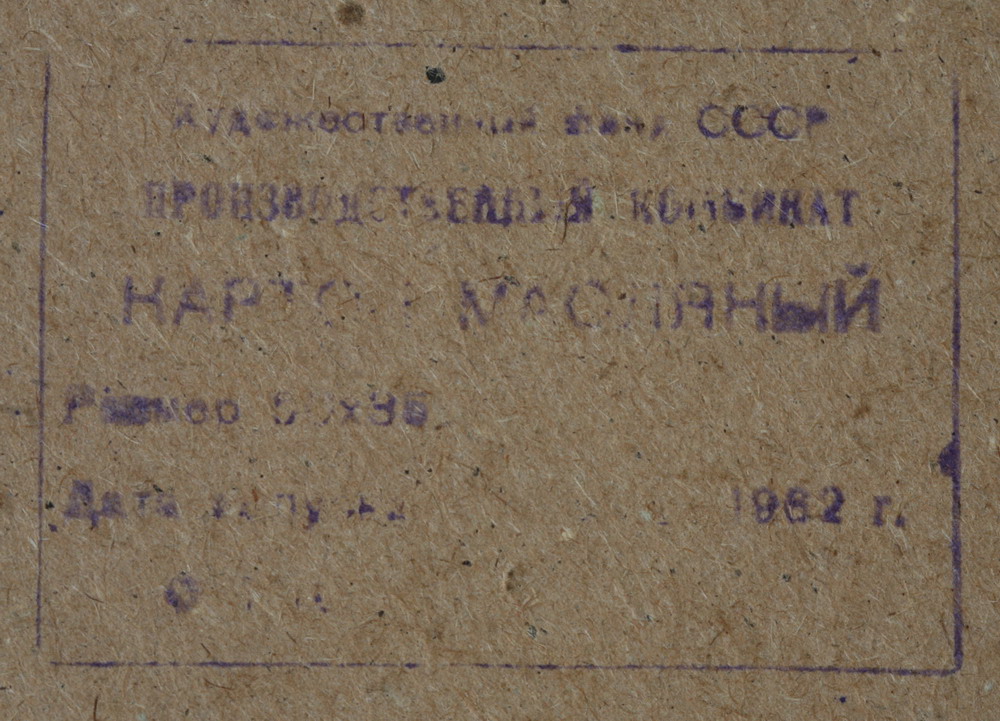 Художественный фонд СССР
ПРОИЗВОДСТВЕННЫЙ КОМБИНАТ
КАРТОН МАСЛЯНЫЙ
Размер
Дата выпуска 1962 г.